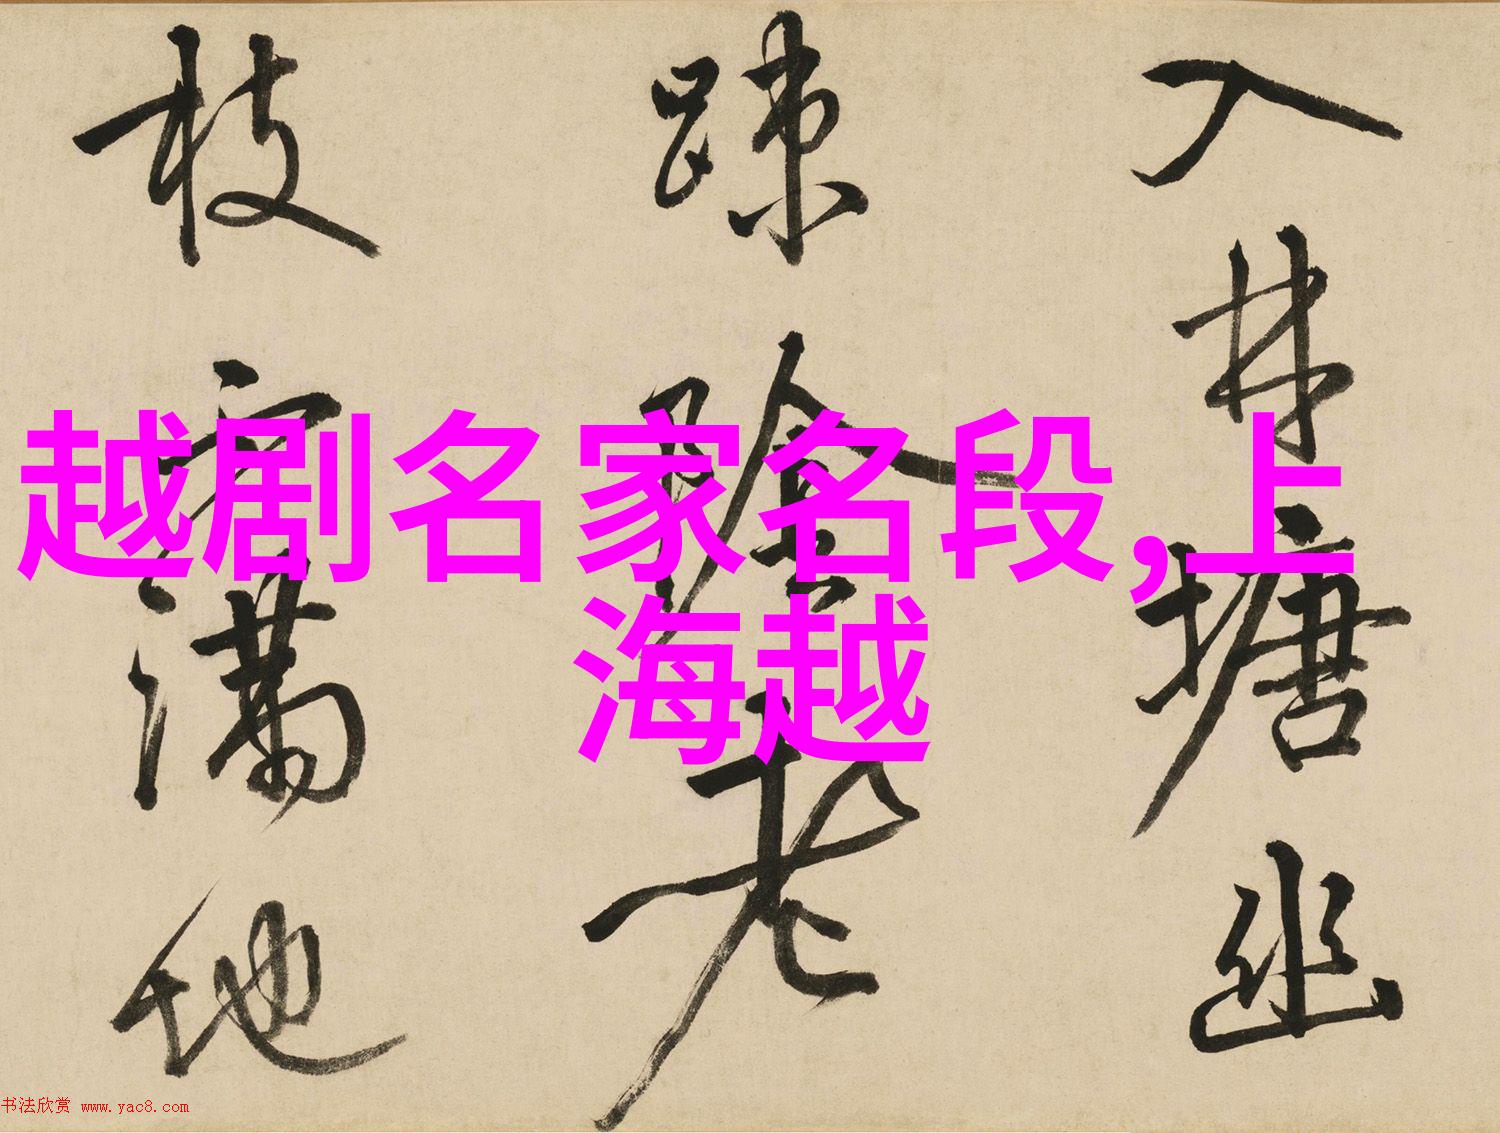 越剧名家名段,上
海越
入林塘幽
踈陰老
枝滿地
书法欣赏 www.yac8.com